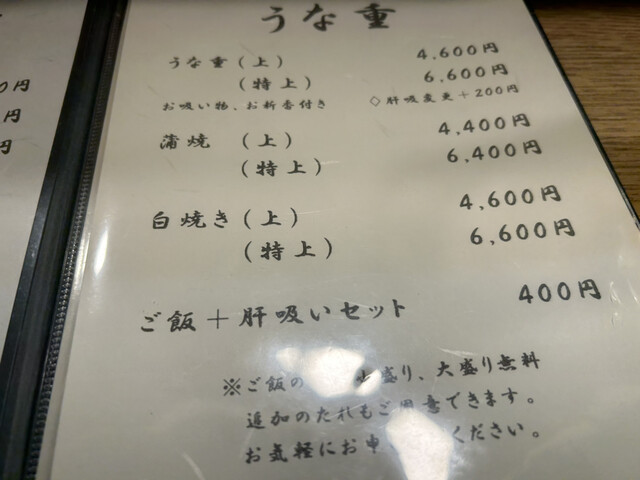 うな重
うな重(上) 4,600円
(特上) 6,600円
お吸い物、お新香付き ◇肝吸変更+200円
蒲焼 (上) 4,400円
(特上) 6,400円
白焼き(上) 4,600円
(特上) 6,600円
ご飯+肝吸いセット 400円
※ご飯の 盛り、大盛り無料
追加のたれもご用意できます。
お気軽にお申 ください。
円
円
円